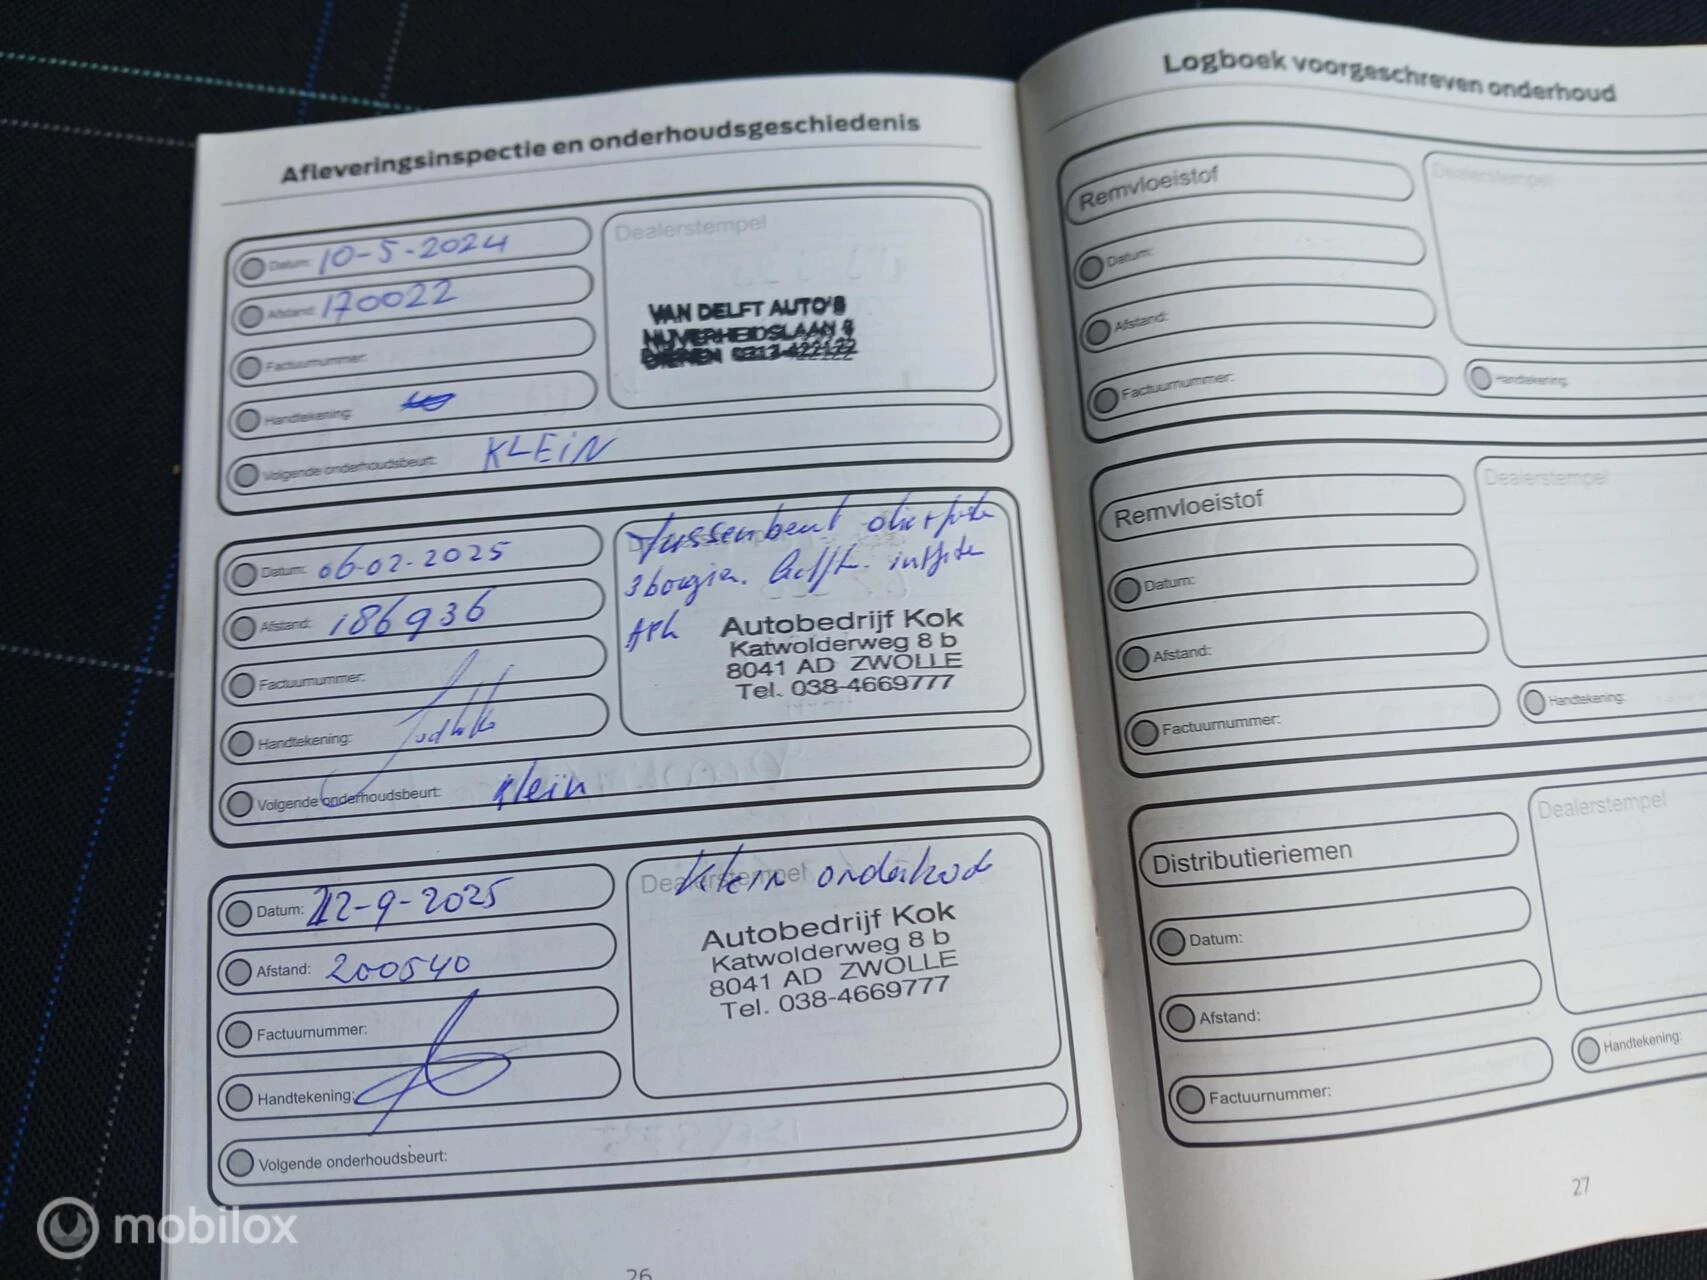 Afleveringsinspectie en onderhoudsgeschiedenis
Datum: 10-5-2024
Afstand: 170022
Factuurnummer:
Handtekening:
Volgende onderhoudsbeurt: KLEIN
Dealerstempel
VAN DELFT AUTO'S
NIJVERHEIDSLAAN
DIEREN 0313-422122
Datum: 06-02-2025
Afstand: 186936
Factuurnummer:
Handtekening:
Volgende onderhoudsbeurt: Klein
Tussenbeurt
3 bougies.
Apk
Autobedrijf Kok
Katwolderweg 8 b
8041 AD ZWOLLE
Tel. 038-4669777
Datum: 22-9-2025
Afstand: 200540
Factuurnummer:
Handtekening:
Volgende onderhoudsbeurt:
Dealerstempel
Klein onderhoud
Autobedrijf Kok
Katwolderweg 8 b
8041 AD ZWOLLE
Tel. 038-4669777
26
Logboek voorgeschreven onderhoud
Remvloeistof
Datum:
Afstand:
Factuurnummer:
Dealerstempel
Handtekening:
Remvloeistof
Datum:
Afstand:
Factuurnummer:
Dealerstempel
Handtekening:
Distributieriemen
Datum:
Afstand:
Factuurnummer:
Dealerstempel
Handtekening:
27
mobilox